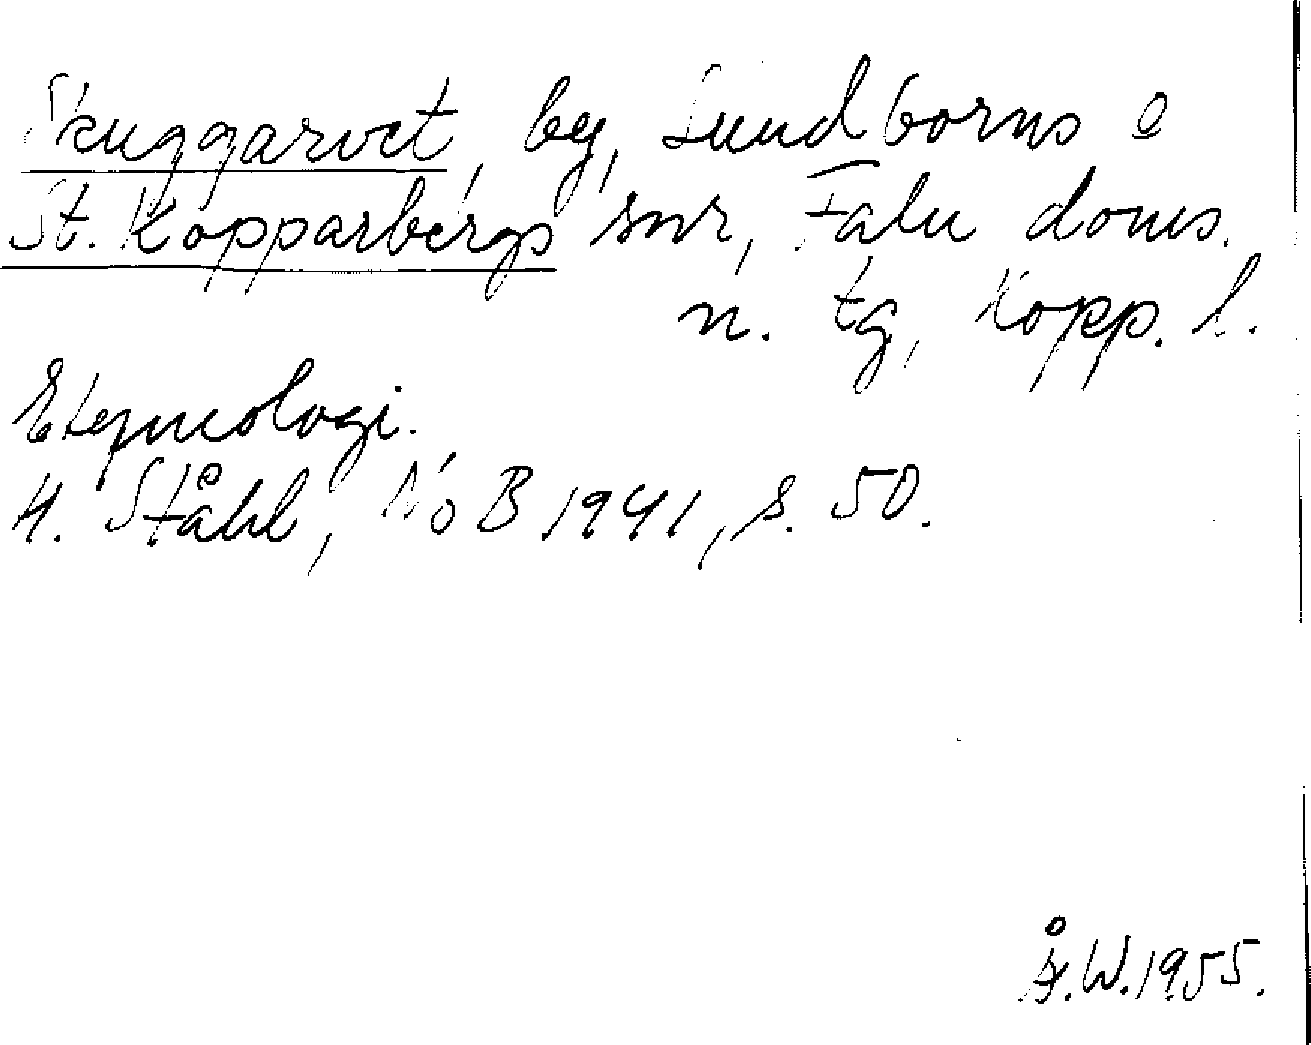 Skuggarvet, by, Sundborns o
St. Kopparbergs snr, Falu doms.
n. tg, Kopp. l.
Etymologi.
H. Ståhl, NoB 1941, s. 50.
Å.W.1955.